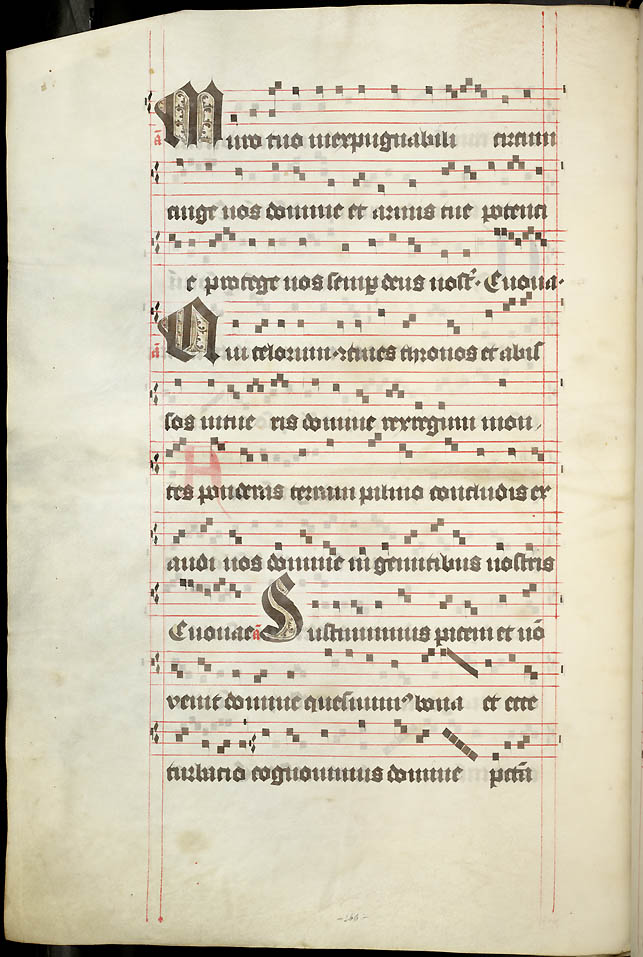 ā Muro tuo inexpugnabili circum
cinge nos domine et armis tue potenti
e protege nos semp deus nost̄. Euoua.
ā Qui celorum cōtines thronos et abis
sos intue ris domine rex regum mon
tes ponderas terram palmo concludis ex
audi nos domine in gemitibus nostris
Euouae ā Sustinuimus pacem et nō
venit domine quesiuimꝰ bona et ecce
turbacio cognouimus domine pctā
-166-